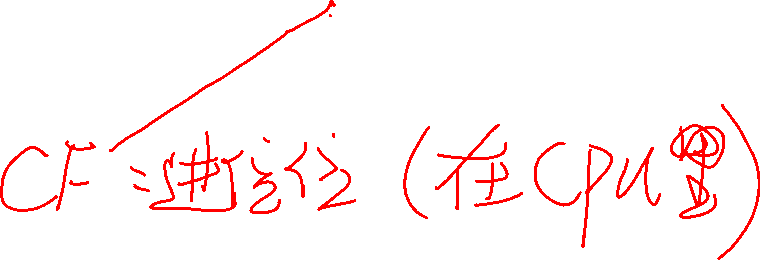 CF:进位位 (在CPU里)